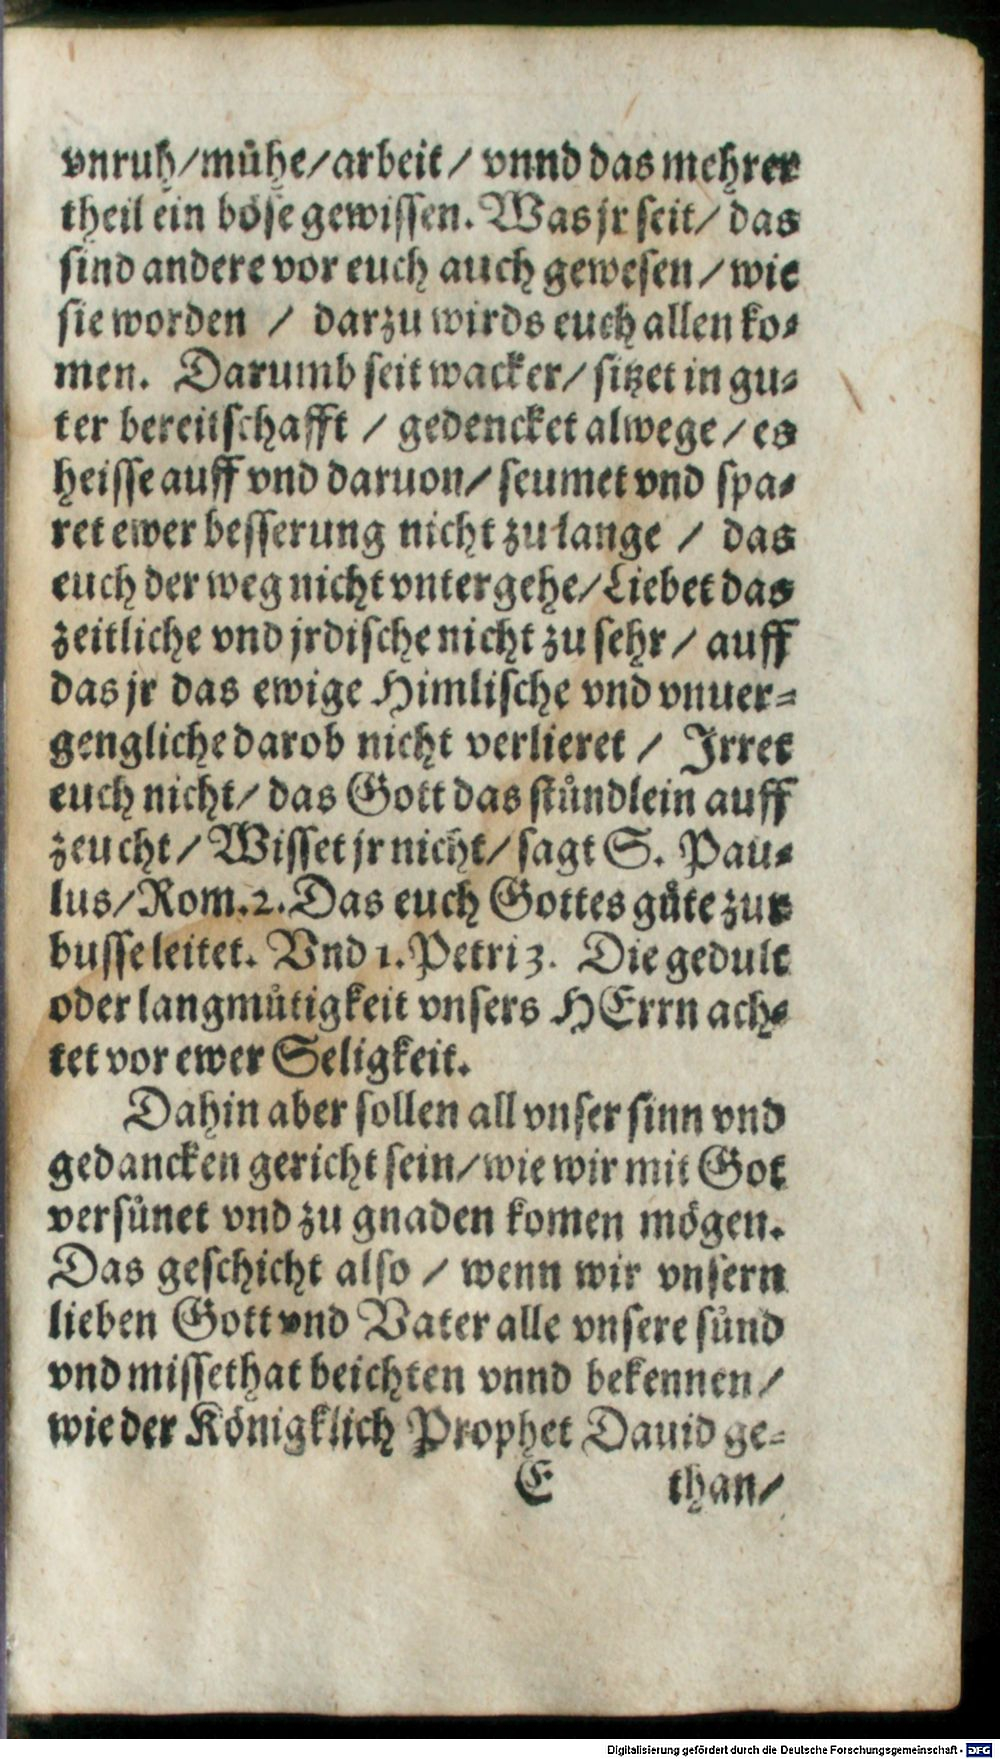 vnruh/mühe/arbeit/ vnnd das mehrer
theil ein böse gewissen. Was jr seit/ das
sind andere vor euch auch gewesen/ wie
sie worden / darzu wirds euch allen ko-
men. Darumb seit wacker/ sitzet in gu-
ter bereitschafft / gedencket alwege/ es
heisse auff vnd daruon/ seumet vnd spa-
ret ewer besserung nicht zu lange / das
euch der weg nicht vntergehe/ Liebet das
zeitliche vnd jrdische nicht zu sehr/ auff
das jr das ewige Himlische vnd vnuer-
gengliche darob nicht verlieret / Irret
euch nicht/ das Gott das stündlein auff
zeucht/ Wisset jr nicht/ sagt S. Pau-
lus/Rom.2. Das euch Gottes güte zur
busse leitet. Vnd 1. Petri 3. Die gedult
oder langmütigkeit vnsers HErrn ach-
tet vor ewer Seligkeit.
Dahin aber sollen all vnser sinn vnd
gedancken gericht sein/ wie wir mit Got
versünet vnd zu gnaden komen mögen.
Das geschicht also / wenn wir vnsern
lieben Gott vnd Vater alle vnsere sünd
vnd missethat beichten vnnd bekennen/
wie der Königklich Prophet Dauid ge-
E than/
Digitalisierung gefördert durch die Deutsche Forschungsgemeinschaft - DFG